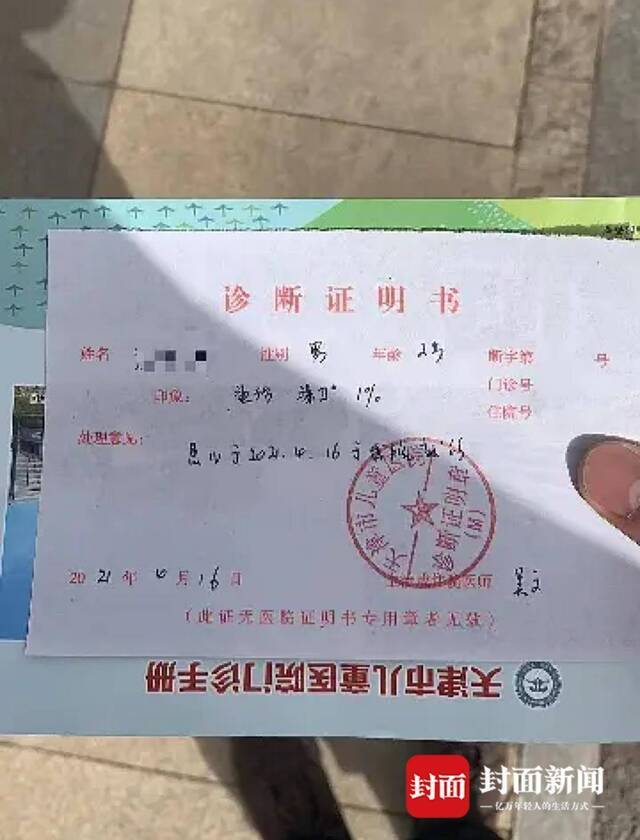 诊断证明书
姓名 性别 男 年龄 2岁 断字第 号
印象: 烫伤 深II° 1% 门诊号
住院号
处理意见:
患儿于2021.4.16于我院就诊
天津市儿童医院
诊断证明章
(M)
2021年4月16日 医师
(此证无医院证明书专用章者无效)
天津市儿童医院门诊手册
封面 封面新闻
亿万年轻人的生活方式